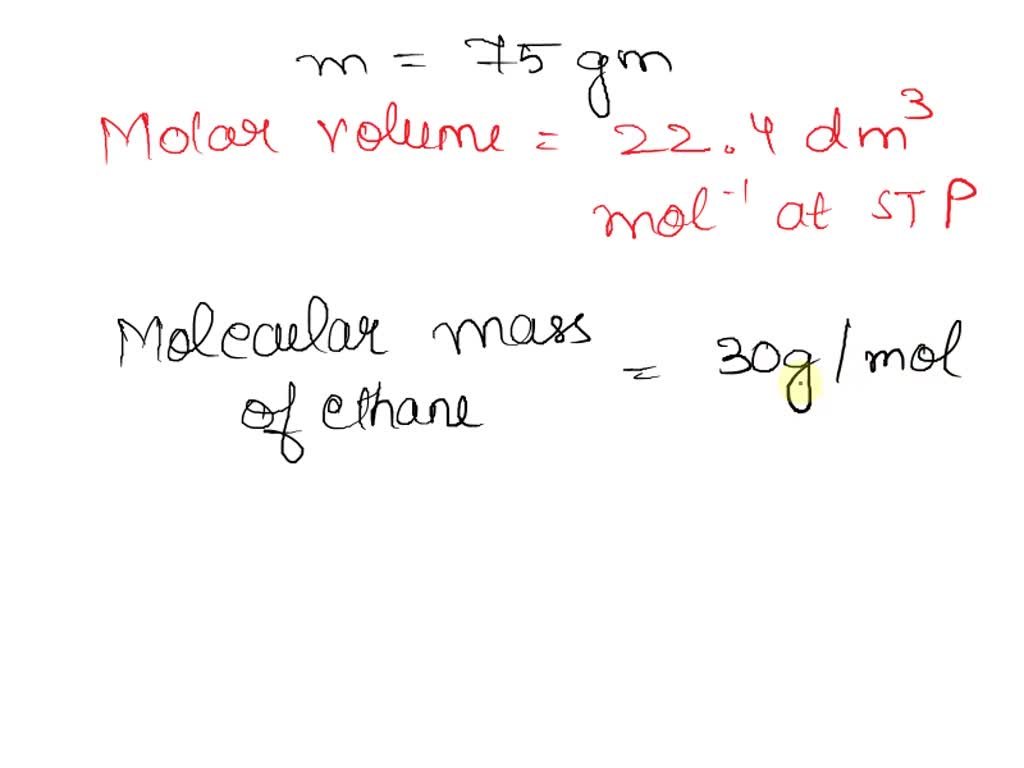 m = 75 gm
Molar volume = 22.4 dm³
mol⁻¹ at STP
Molecular mass
of ethane = 30g/mol